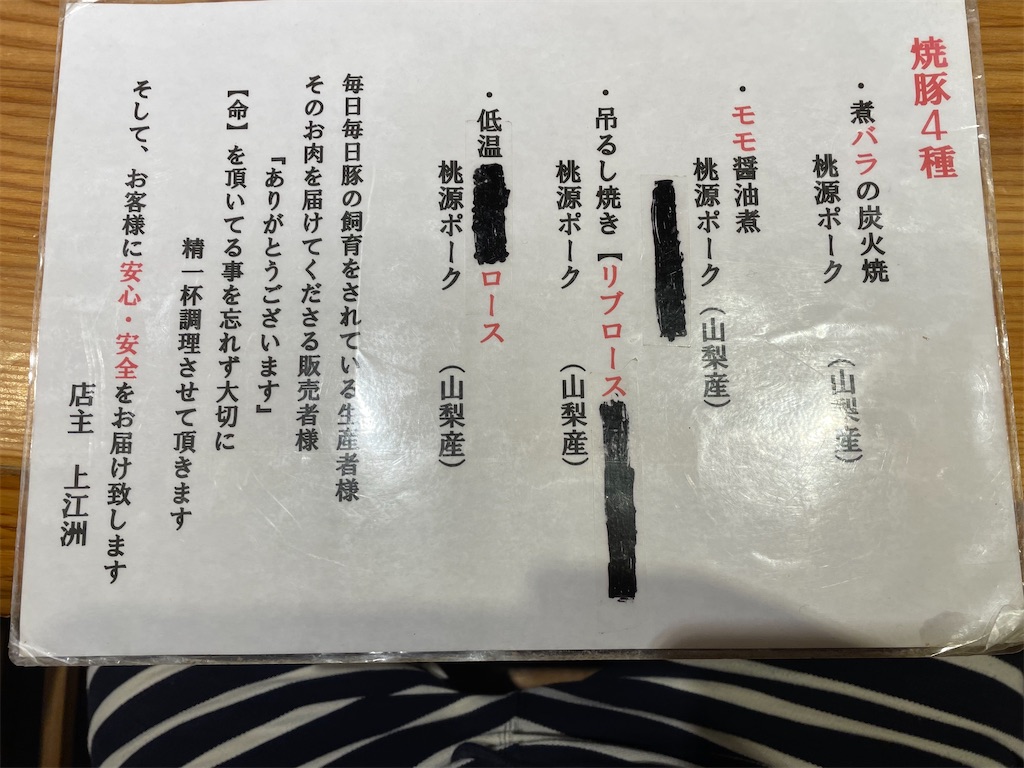 焼豚4種
・煮バラの炭火焼
桃源ポーク （山梨産）
・モモ醤油煮
桃源ポーク（山梨産）
・吊るし焼き【リブロース
桃源ポーク （山梨産）
・低温 ロース
桃源ポーク （山梨産）
毎日毎日豚の飼育をされている生産者様
そのお肉を届けてくださる販売者様
『ありがとうございます』
【命】を頂いてる事を忘れず大切に
精一杯調理させて頂きます
そして、お客様に安心・安全をお届け致します
店主 上江洲